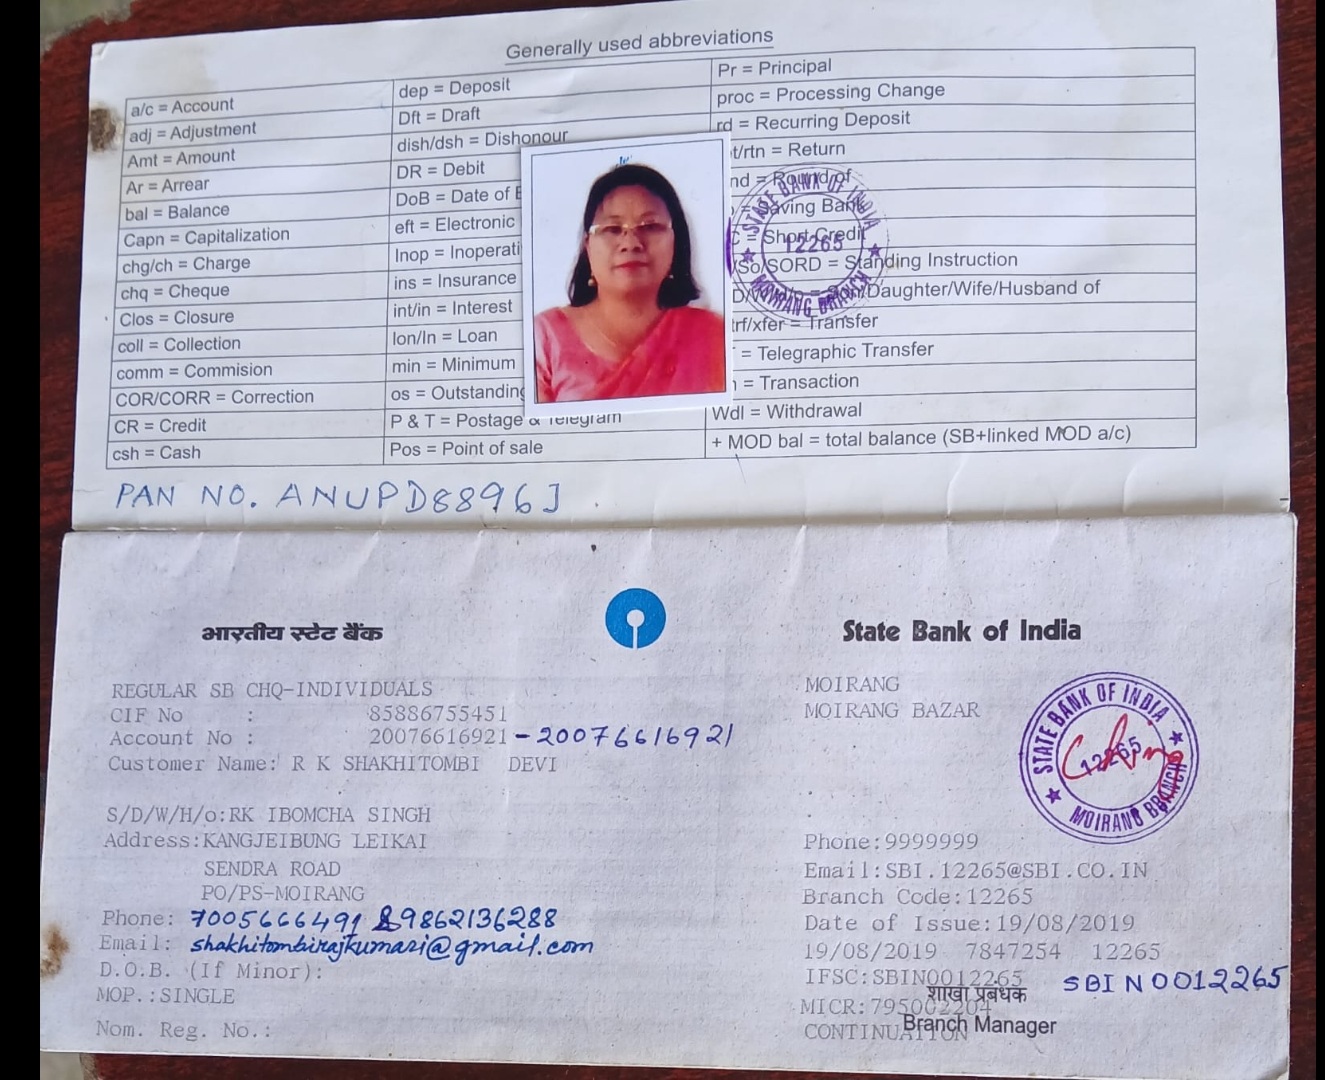 Generally used abbreviations
a/c = Account
adj = Adjustment
Amt = Amount
Ar = Arrear
bal = Balance
Capn = Capitalization
chg/ch = Charge
chq = Cheque
Clos = Closure
coll = Collection
comm = Commision
COR/CORR = Correction
CR = Credit
csh = Cash
dep = Deposit
Dft = Draft
dish/dsh = Dishonour
DR = Debit
DoB = Date of
eft = Electronic
Inop = Inoperati
ins = Insurance
int/in = Interest
lon/ln = Loan
min = Minimum
os = Outstanding
P & T = Postage & Telegram
Pos = Point of sale
Pr = Principal
proc = Processing Change
rd = Recurring Deposit
t/rtn = Return
nd = Round of
= Saving Bank
= Short Credit
/So/SORD = Standing Instruction
Daughter/Wife/Husband of
trf/xfer = Transfer
= Telegraphic Transfer
= Transaction
Wdl = Withdrawal
+ MOD bal = total balance (SB+linked MOD a/c)
STATE BANK OF INDIA
12265
MOIRANG BRANCH
PAN NO. ANUPD8896J
भारतीय स्टेट बैंक
State Bank of India
REGULAR SB CHQ-INDIVIDUALS
CIF No : 85886755451
Account No : 20076616921 - 20076616921
Customer Name: R K SHAKHITOMBI DEVI
S/D/W/H/o:RK IBOMCHA SINGH
Address:KANGJEIBUNG LEIKAI
SENDRA ROAD
PO/PS-MOIRANG
Phone: 7005666491 & 9862136288
Email: shakhitombirajkumari@gmail.com
D.O.B. (If Minor):
MOP.:SINGLE
Nom. Reg. No.:
MOIRANG
MOIRANG BAZAR
STATE BANK OF INDIA
12265
MOIRANG BRANCH
Phone:9999999
Email:SBI.12265@SBI.CO.IN
Branch Code:12265
Date of Issue:19/08/2019
19/08/2019 7847254 12265
IFSC:SBIN0012265 SBIN0012265
शाखा प्रबंधक
MICR:795002204
CONTINUATION
Branch Manager